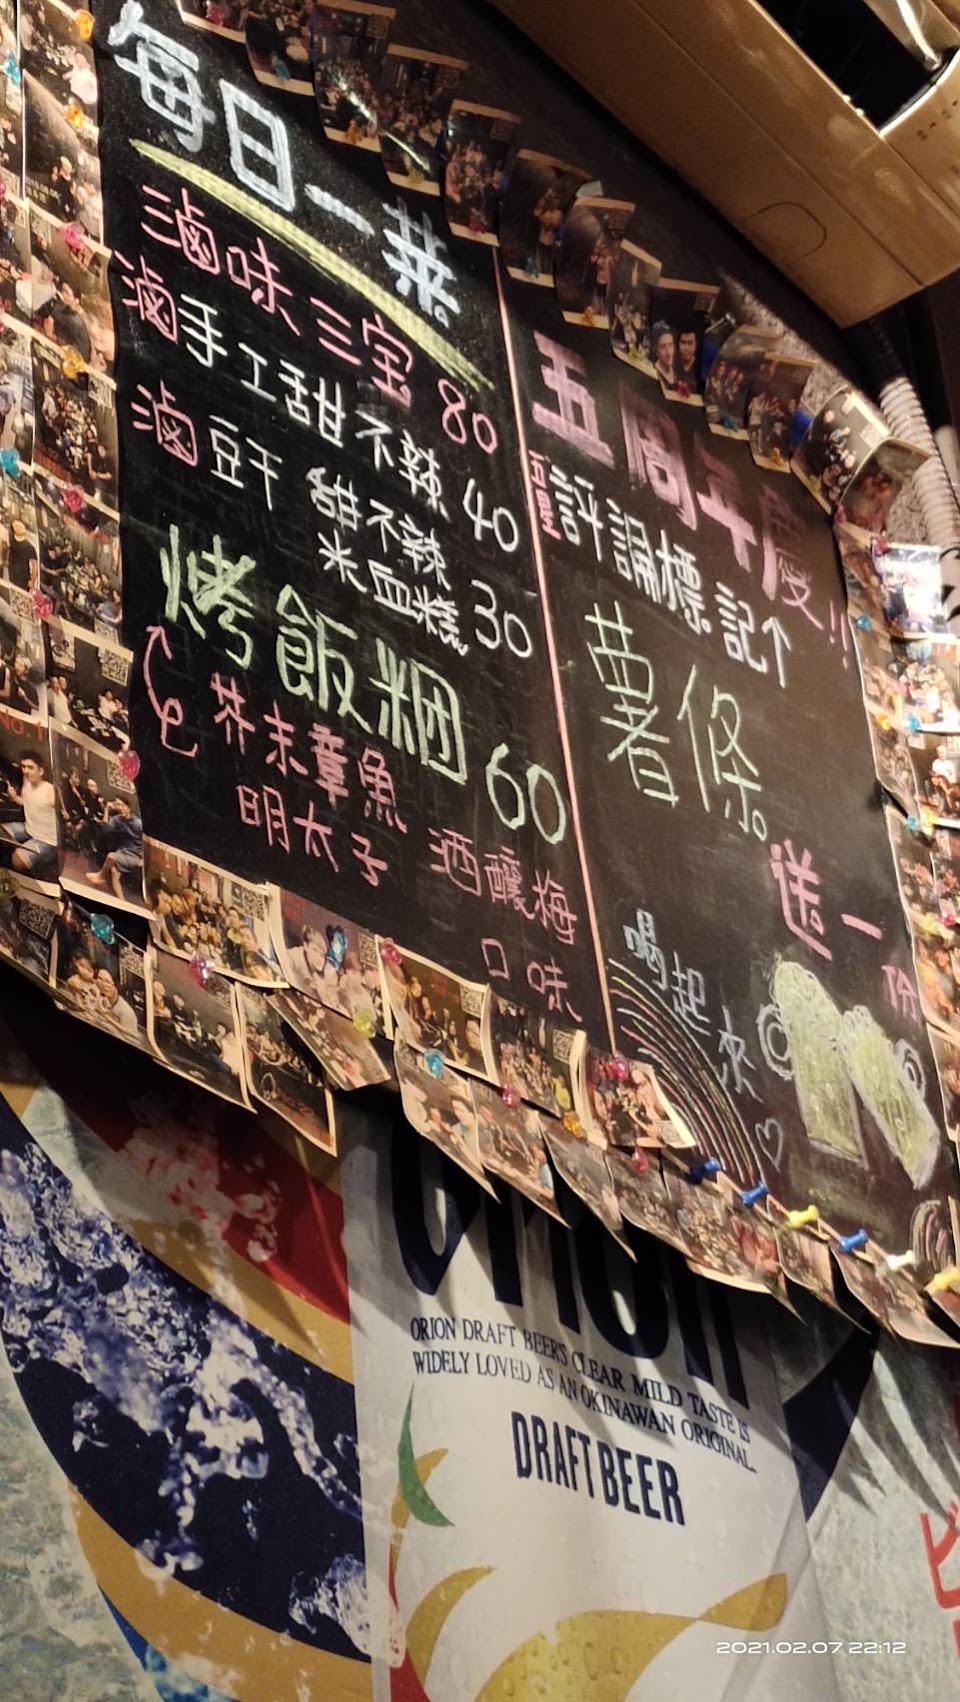 每日一菜
三滷味三宝 80
滷手工甜不辣 40
滷豆干 甜不辣
米血糕 30
烤飯糰 60
芥末章魚
明太子 酒釀梅
口味
五周年慶!!
五星
評論標記个
薯條。
送一
份
喝起來
ORION DRAFT BEER'S CLEAR MILD TASTE IS
WIDELY LOVED AS AN OKINAWAN ORIGINAL.
DRAFT BEER
ビ
2021.02.07 22:12